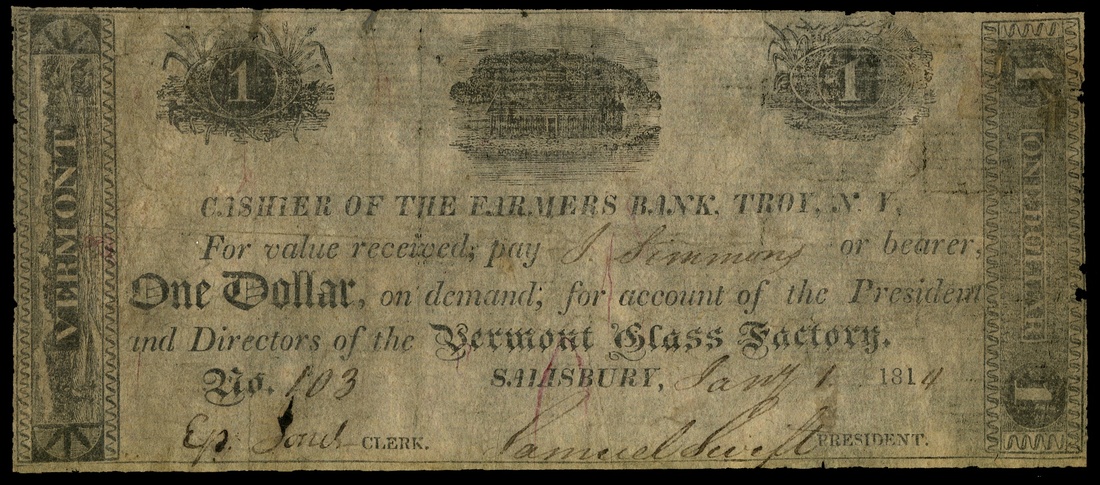 1 1
VERMONT
1 ONE DOLLAR 1
CASHIER OF THE FARMERS BANK, TROY, N. Y,
For value received; pay J. Simmons or bearer,
One Dollar, on demand; for account of the President
and Directors of the Vermont Glass Factory.
No. 103 SALISBURY, Jany 1 1814
Ep. CLERK. Samuel Swift PRESIDENT.